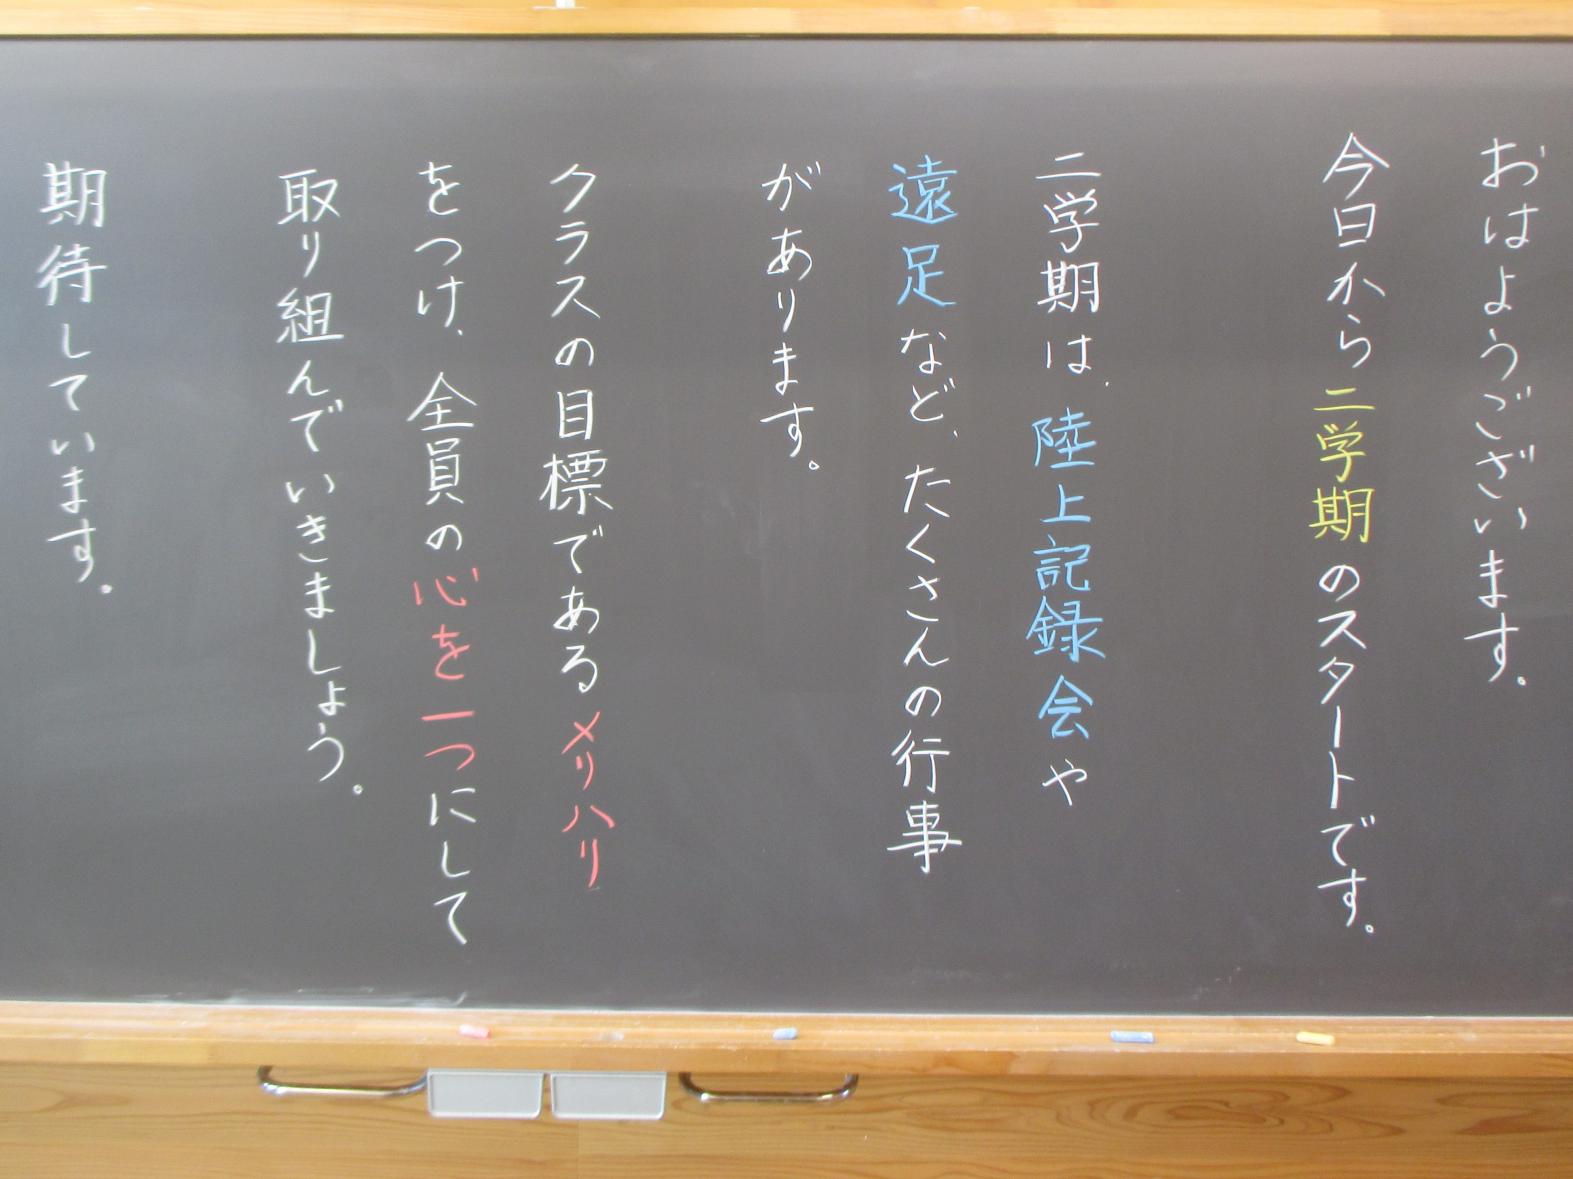 おはようございます。
今日から二学期のスタートです。
二学期は、陸上記録会や
遠足など、たくさんの行事
があります。
クラスの目標であるメリハリ
をつけ、全員の心を一つにして
取り組んでいきましょう。
期待しています。